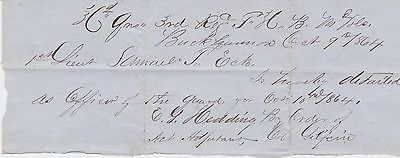 Hd Qrs 3rd Regt P. H. B. M Vols.
Buckhannon Oct 9th 1864
1st Lieut Samuel T. Eck
Is hereby detailed
As Officer of the guard for Oct 10th 1864.
E. G. Hedding By Order of
Act Adjutant